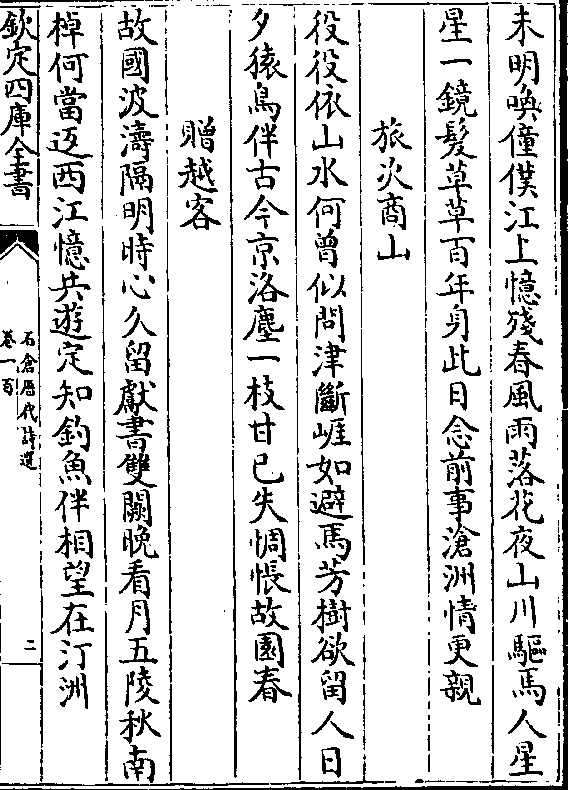 未明喚僮僕江上憶殘春風雨落花夜山川驅馬人星
星一鏡髮草草百年身此日念前事滄洲情更親
旅次商山
役役依山水何曾似問津斷崕如避馬芳樹欲留人日
夕猿鳥伴古今京洛塵一枝甘已失惆悵故園春
贈越客
故國波濤隔明時心久留獻書雙闕晚看月五陵秋南
棹何當返西江憶共遊定知釣魚伴相望在汀洲
欽定四庫全書
石倉歷代詩選
卷一百
二